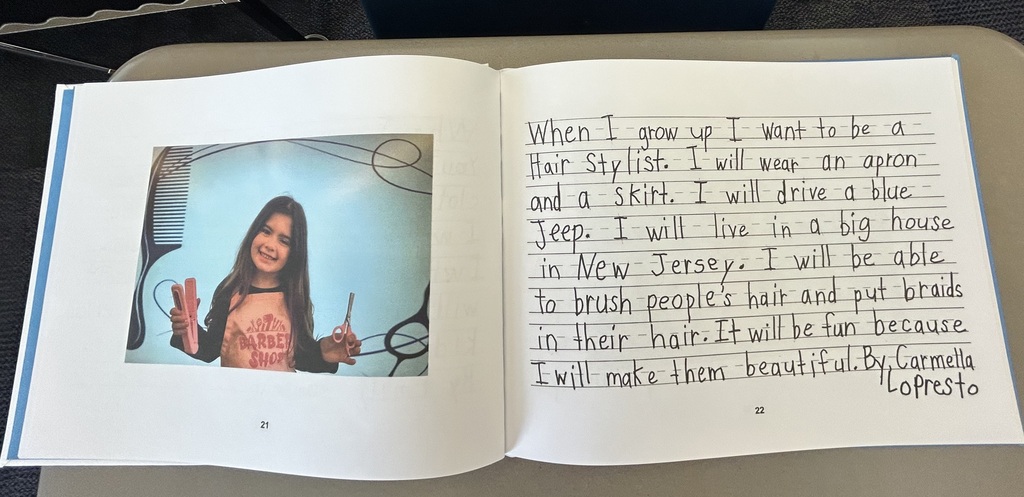 BARBER
SHOP
21
When I grow up I want to be a
Hair Stylist. I will wear an apron
and a skirt. I will drive a blue
Jeep. I will live in a big house
in New Jersey. I will be able
to brush people's hair and put braids
in their hair. It will be fun because
I will make them beautiful. By, Carmella
LoPresto
22